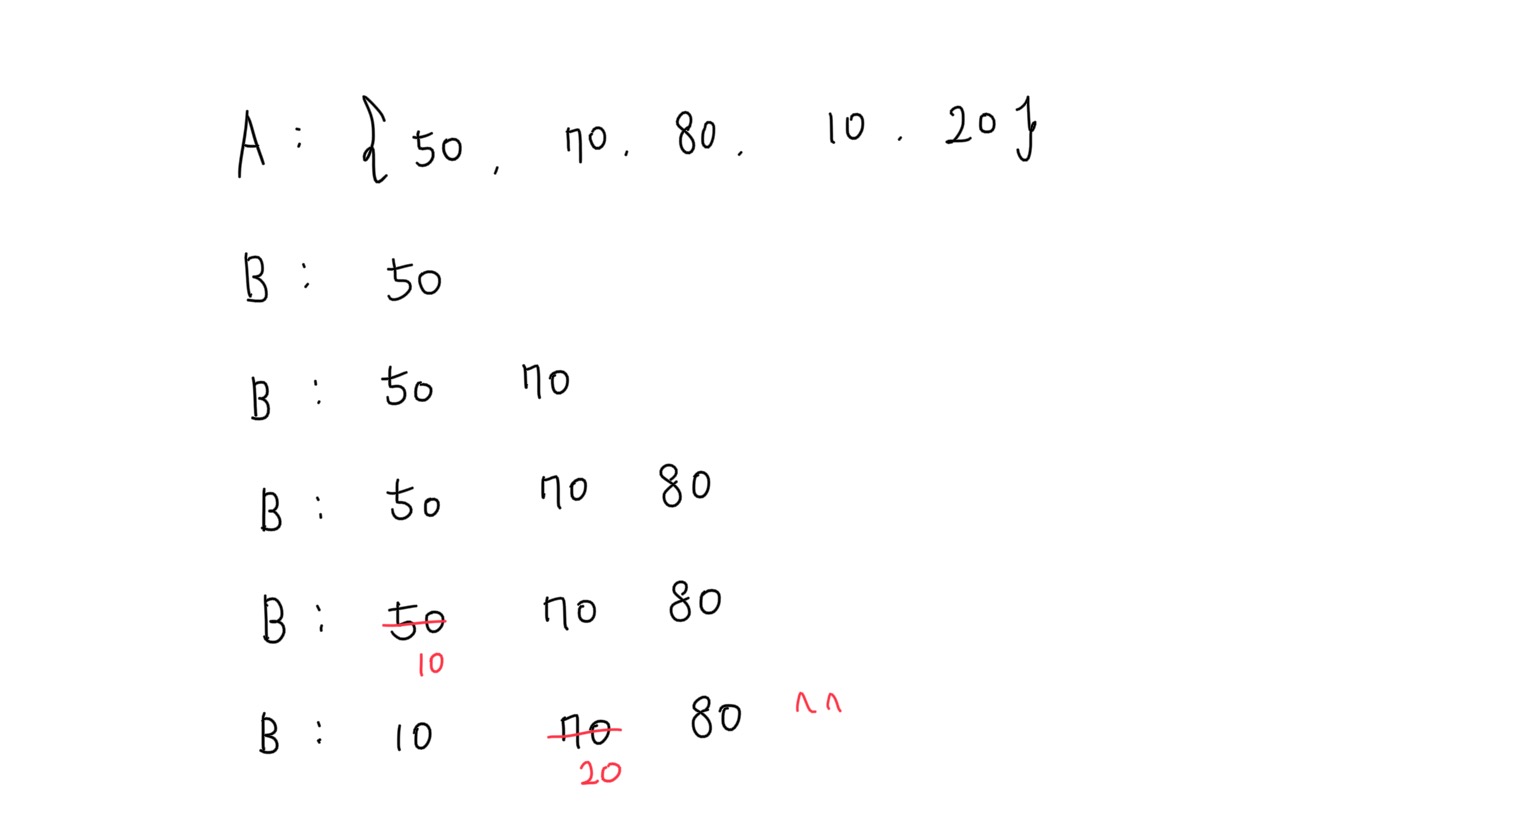 A : { 50 , 70 . 80 . 10 . 20 }
B : 50
B : 50 70
B : 50 70 80
B : 50 70 80
10
B : 10 70 80 ^^
20